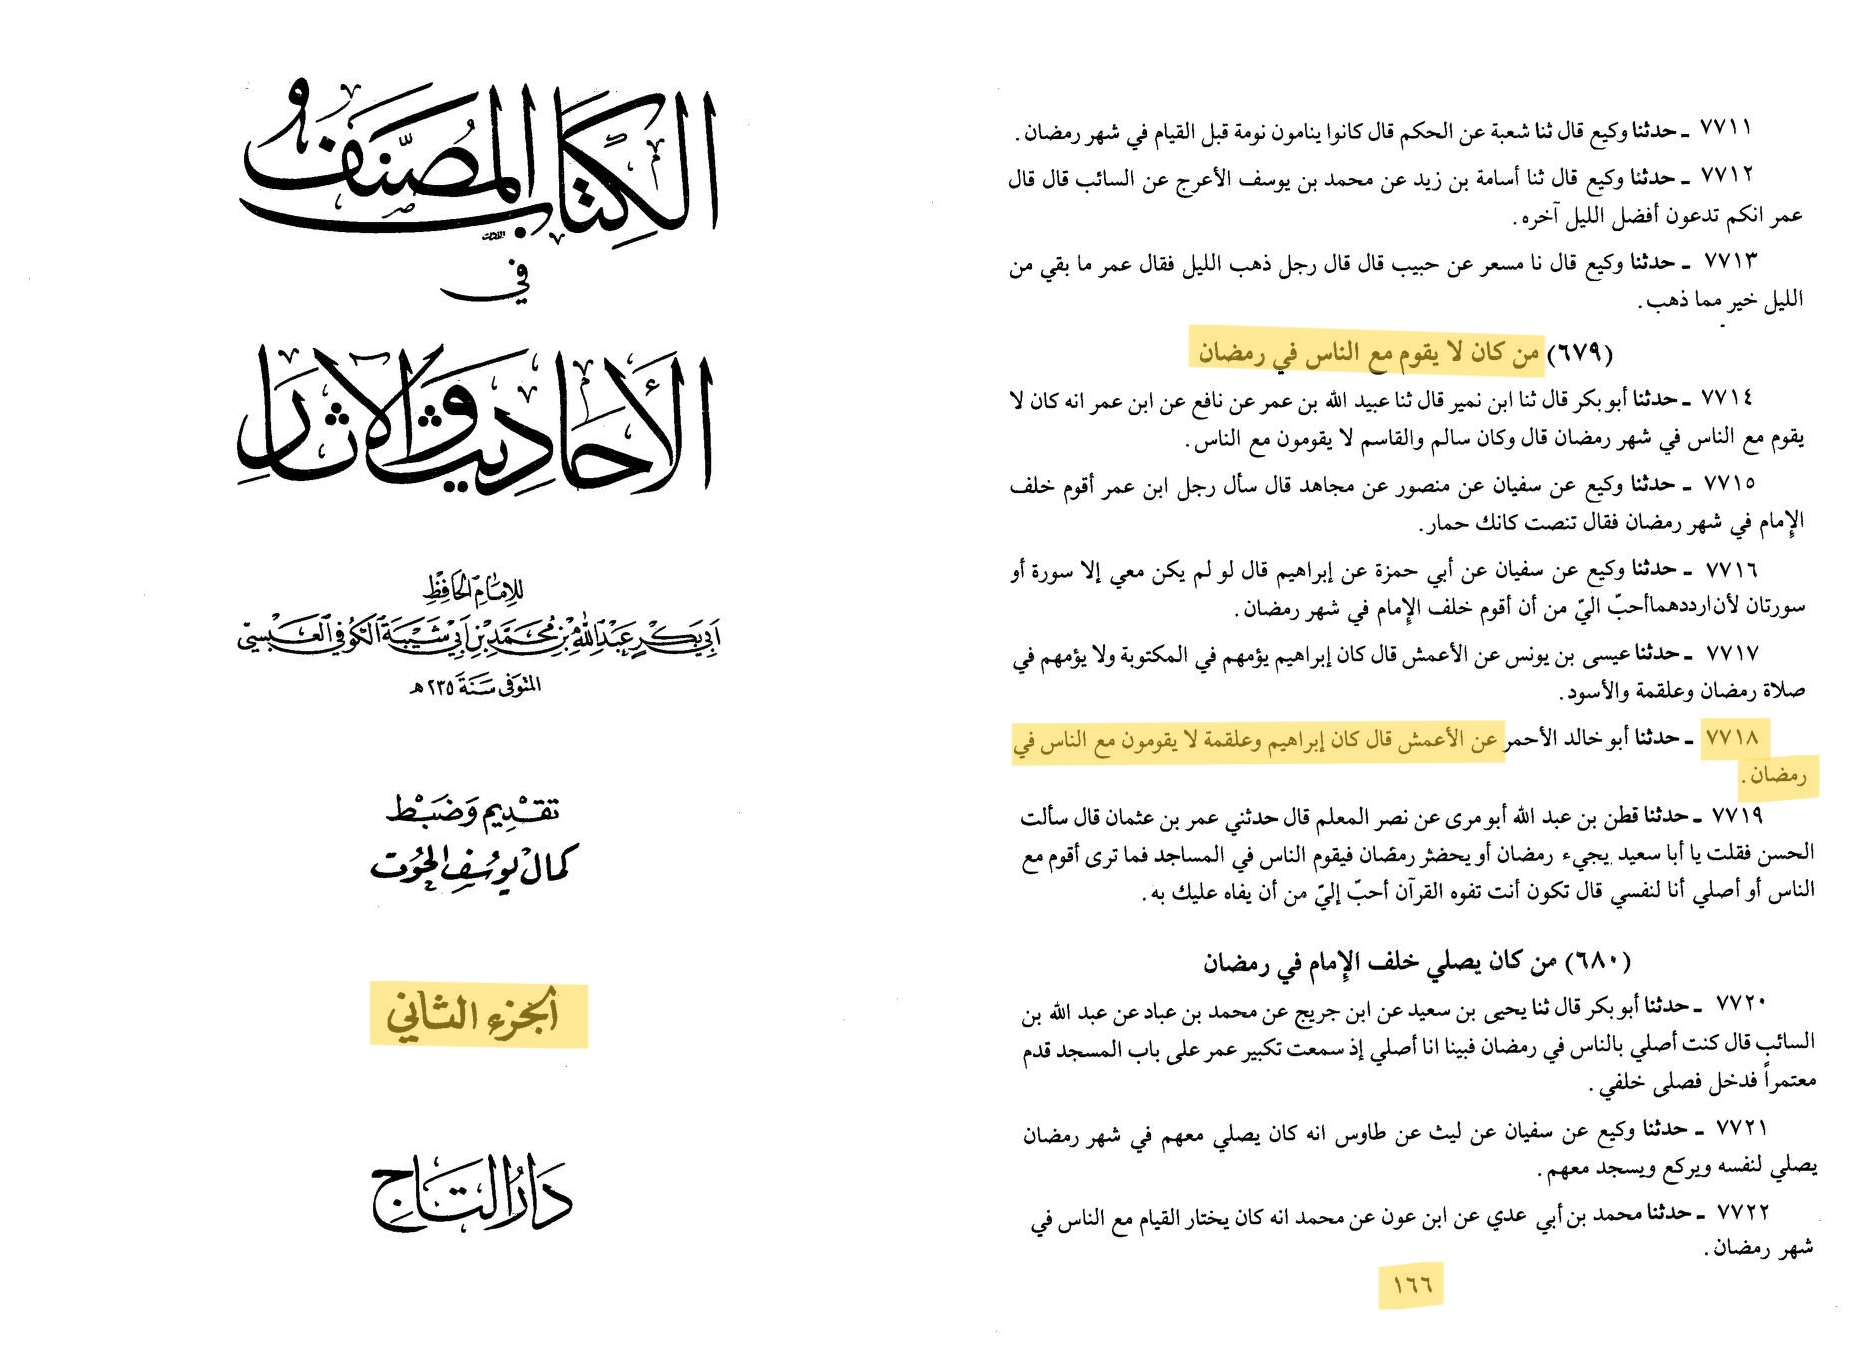 الكتاب المصنف
في
الأحاديث والآثار
للإمام الحافظ
أبي بكر عبد الله بن محمد بن أبي شيبة الكوفي العبسي
المتوفى سنة ٢٣٥ هـ
تقديم وضبط
كمال يوسف الحوت
الجزء الثاني
دار التاج
٧٧١١ ـ حدثنا وكيع قال ثنا شعبة عن الحكم قال كانوا ينامون نومة قبل القيام في شهر رمضان .
٧٧١٢ ـ حدثنا وكيع قال ثنا أسامة بن زيد عن محمد بن يوسف الأعرج عن السائب قال قال
عمر انكم تدعون أفضل الليل آخره .
٧٧١٣ ـ حدثنا وكيع قال نا مسعر عن حبيب قال قال رجل ذهب الليل فقال عمر ما بقي من
الليل خير مما ذهب .
(٦٧٩) من كان لا يقوم مع الناس في رمضان
٧٧١٤ ـ حدثنا أبو بكر قال ثنا ابن نمير قال ثنا عبيد الله بن عمر عن نافع عن ابن عمر انه كان لا
يقوم مع الناس في شهر رمضان قال وكان سالم والقاسم لا يقومون مع الناس .
٧٧١٥ ـ حدثنا وكيع عن سفيان عن منصور عن مجاهد قال سأل رجل ابن عمر أقوم خلف
الإمام في شهر رمضان فقال تنصت كانك حمار .
٧٧١٦ ـ حدثنا وكيع عن سفيان عن أبي حمزة عن إبراهيم قال لو لم يكن معي إلا سورة أو
سورتان لأن ارددهما أحبّ اليّ من أن أقوم خلف الإمام في شهر رمضان .
٧٧١٧ ـ حدثنا عيسى بن يونس عن الأعمش قال كان إبراهيم يؤمهم في المكتوبة ولا يؤمهم في
صلاة رمضان وعلقمة والأسود .
٧٧١٨ ـ حدثنا أبو خالد الأحمر عن الأعمش قال كان إبراهيم وعلقمة لا يقومون مع الناس في
رمضان .
٧٧١٩ ـ حدثنا قطن بن عبد الله أبو مرى عن نصر المعلم قال حدثني عمر بن عثمان قال سألت
الحسن فقلت يا أبا سعيد يجيء رمضان أو يحضر رمضان فيقوم الناس في المساجد فما ترى أقوم مع
الناس أو أصلي أنا لنفسي قال تكون أنت تفوه القرآن أحبّ إليّ من أن يفاه عليك به .
(٦٨٠) من كان يصلي خلف الإمام في رمضان
٧٧٢٠ ـ حدثنا أبو بكر قال ثنا يحيى بن سعيد عن ابن جريج عن محمد بن عباد عن عبد الله بن
السائب قال كنت أصلي بالناس في رمضان فبينا انا أصلي إذ سمعت تكبير عمر على باب المسجد قدم
معتمراً فدخل فصلى خلفي .
٧٧٢١ ـ حدثنا وكيع عن سفيان عن ليث عن طاوس انه كان يصلي معهم في شهر رمضان
يصلي لنفسه ويركع ويسجد معهم .
٧٧٢٢ ـ حدثنا محمد بن أبي عدي عن ابن عون عن محمد انه كان يختار القيام مع الناس في
شهر رمضان .
١٦٦